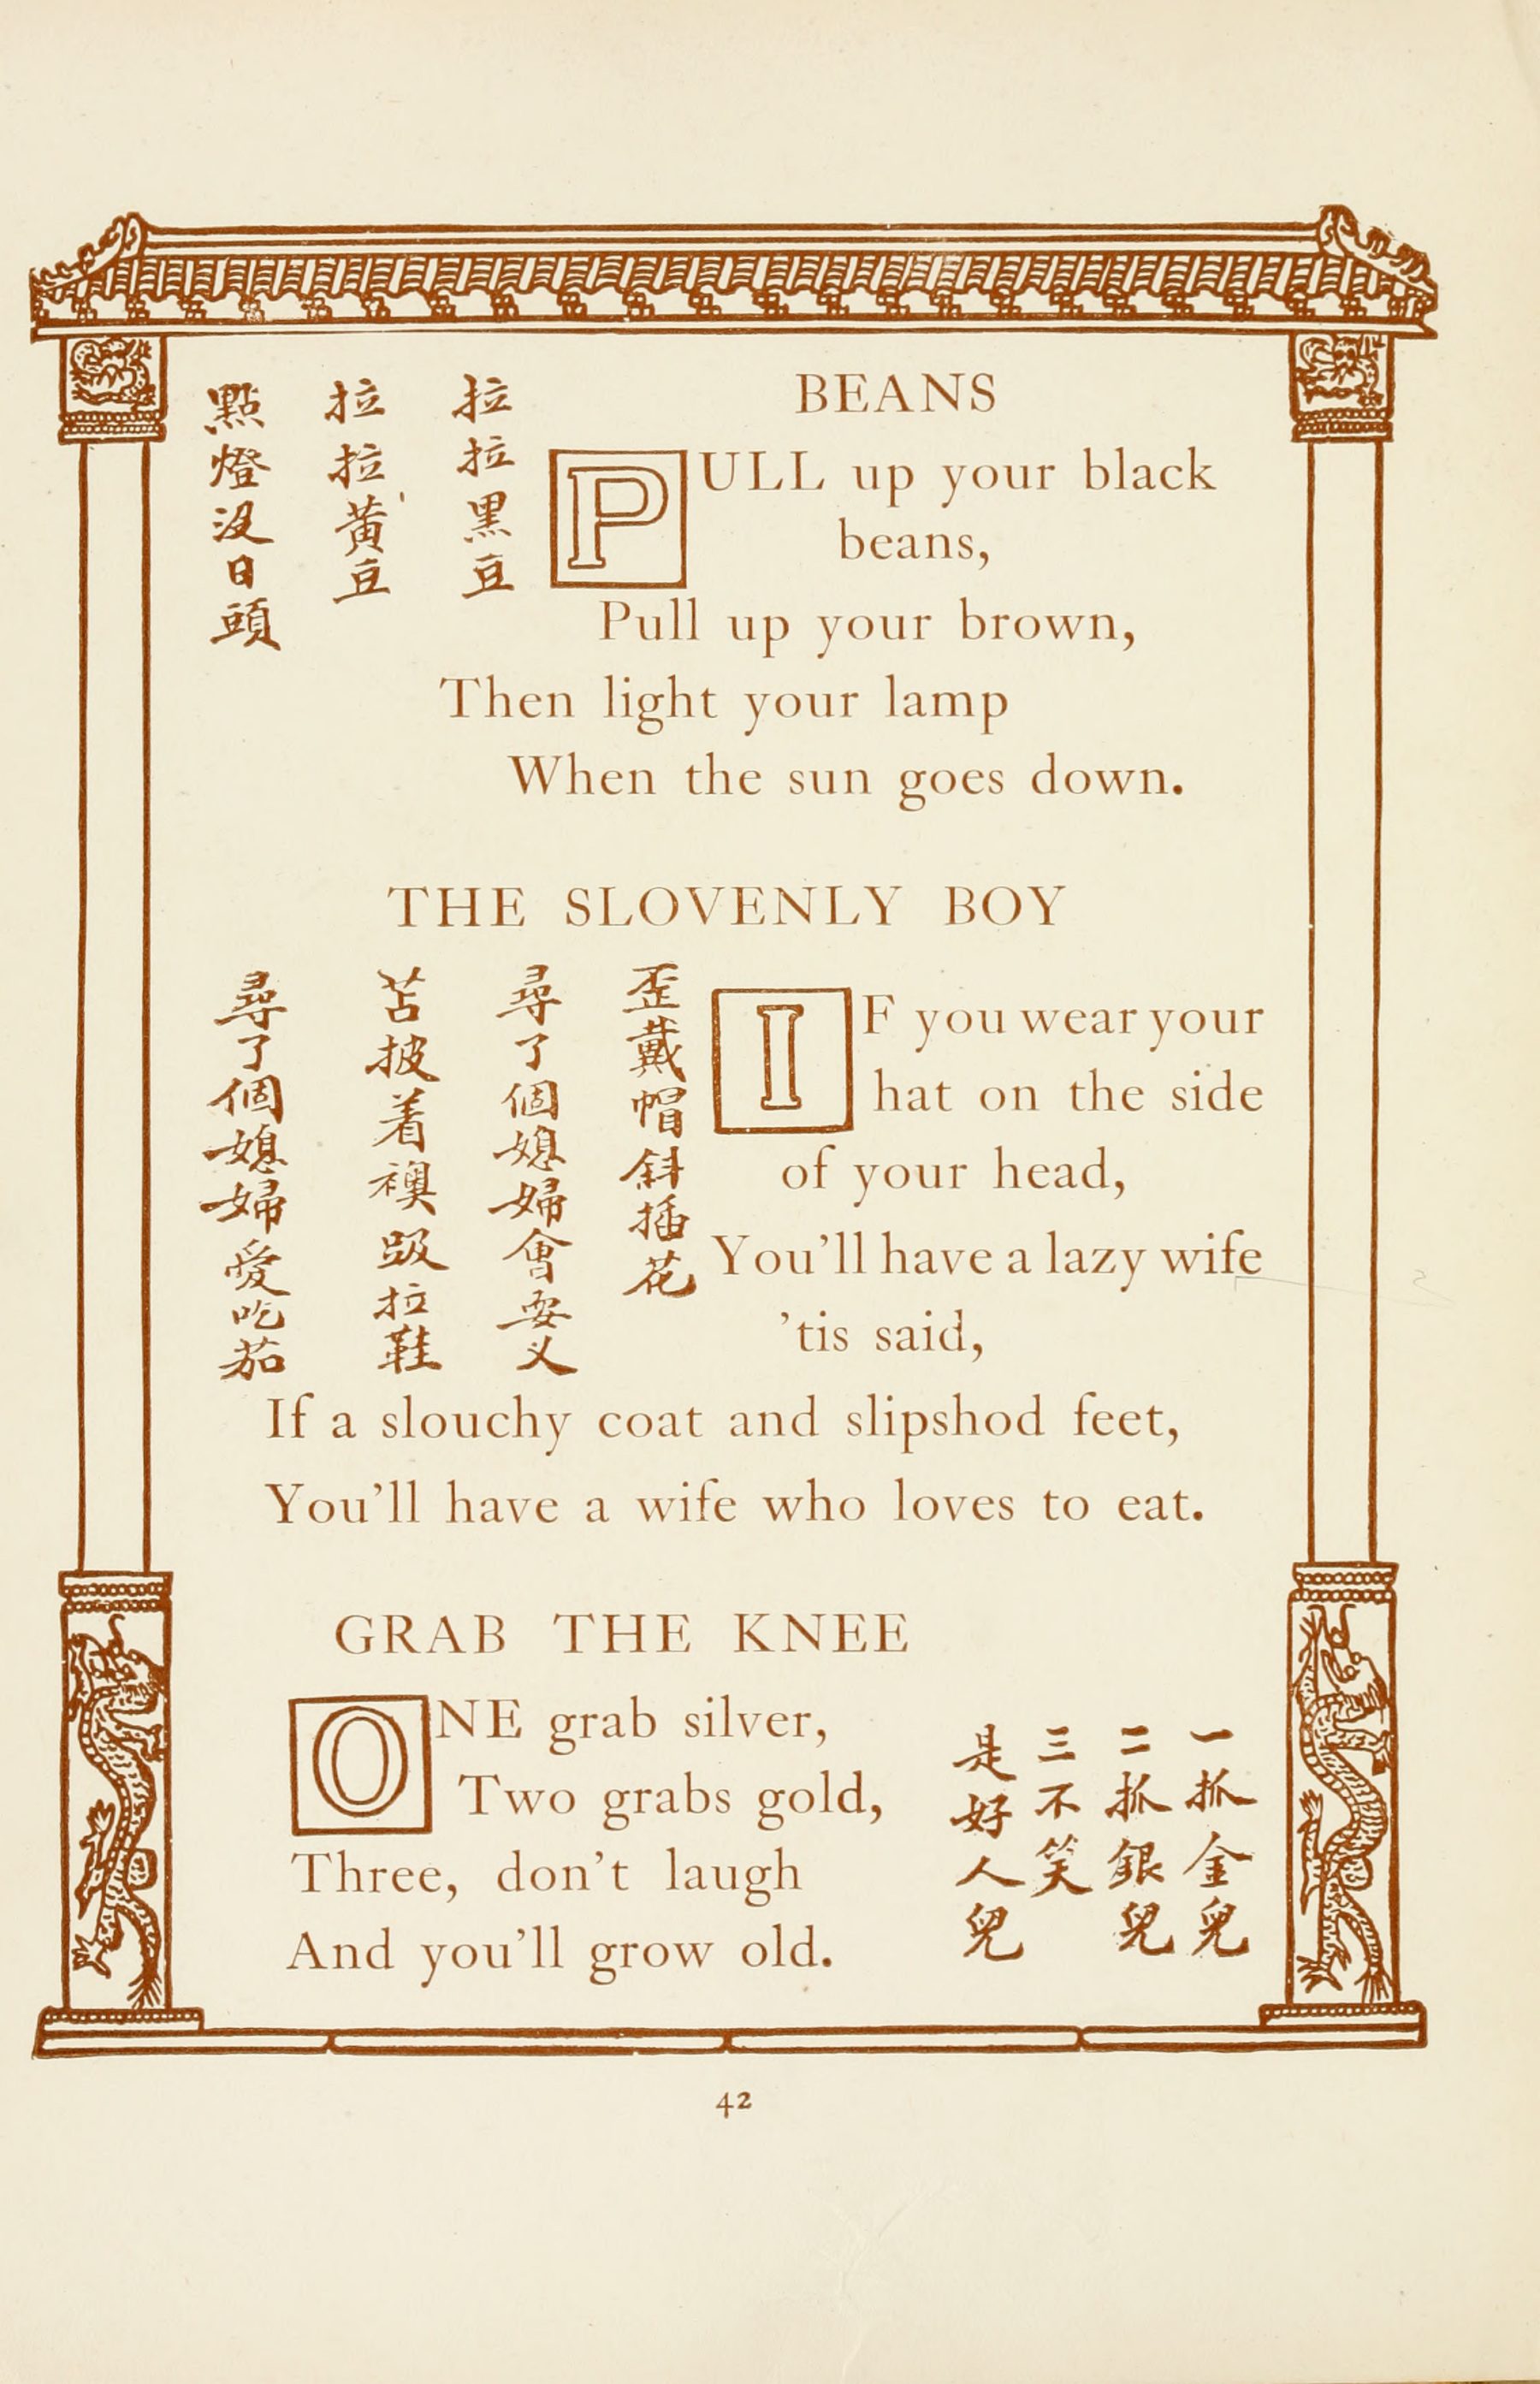 BEANS
拉拉黑豆
拉拉黃豆
點燈沒日頭
PULL up your black
beans,
Pull up your brown,
Then light your lamp
When the sun goes down.
THE SLOVENLY BOY
歪戴帽斜插花
尋了個媳婦會耍乂
苫披着襖趿拉鞋
尋了個媳婦愛吃茄
IF you wear your
hat on the side
of your head,
You'll have a lazy wife
'tis said,
If a slouchy coat and slipshod feet,
You'll have a wife who loves to eat.
GRAB THE KNEE
ONE grab silver,
Two grabs gold,
Three, don't laugh
And you'll grow old.
一抓金兒
二抓銀兒
三不笑
是好人兒
42